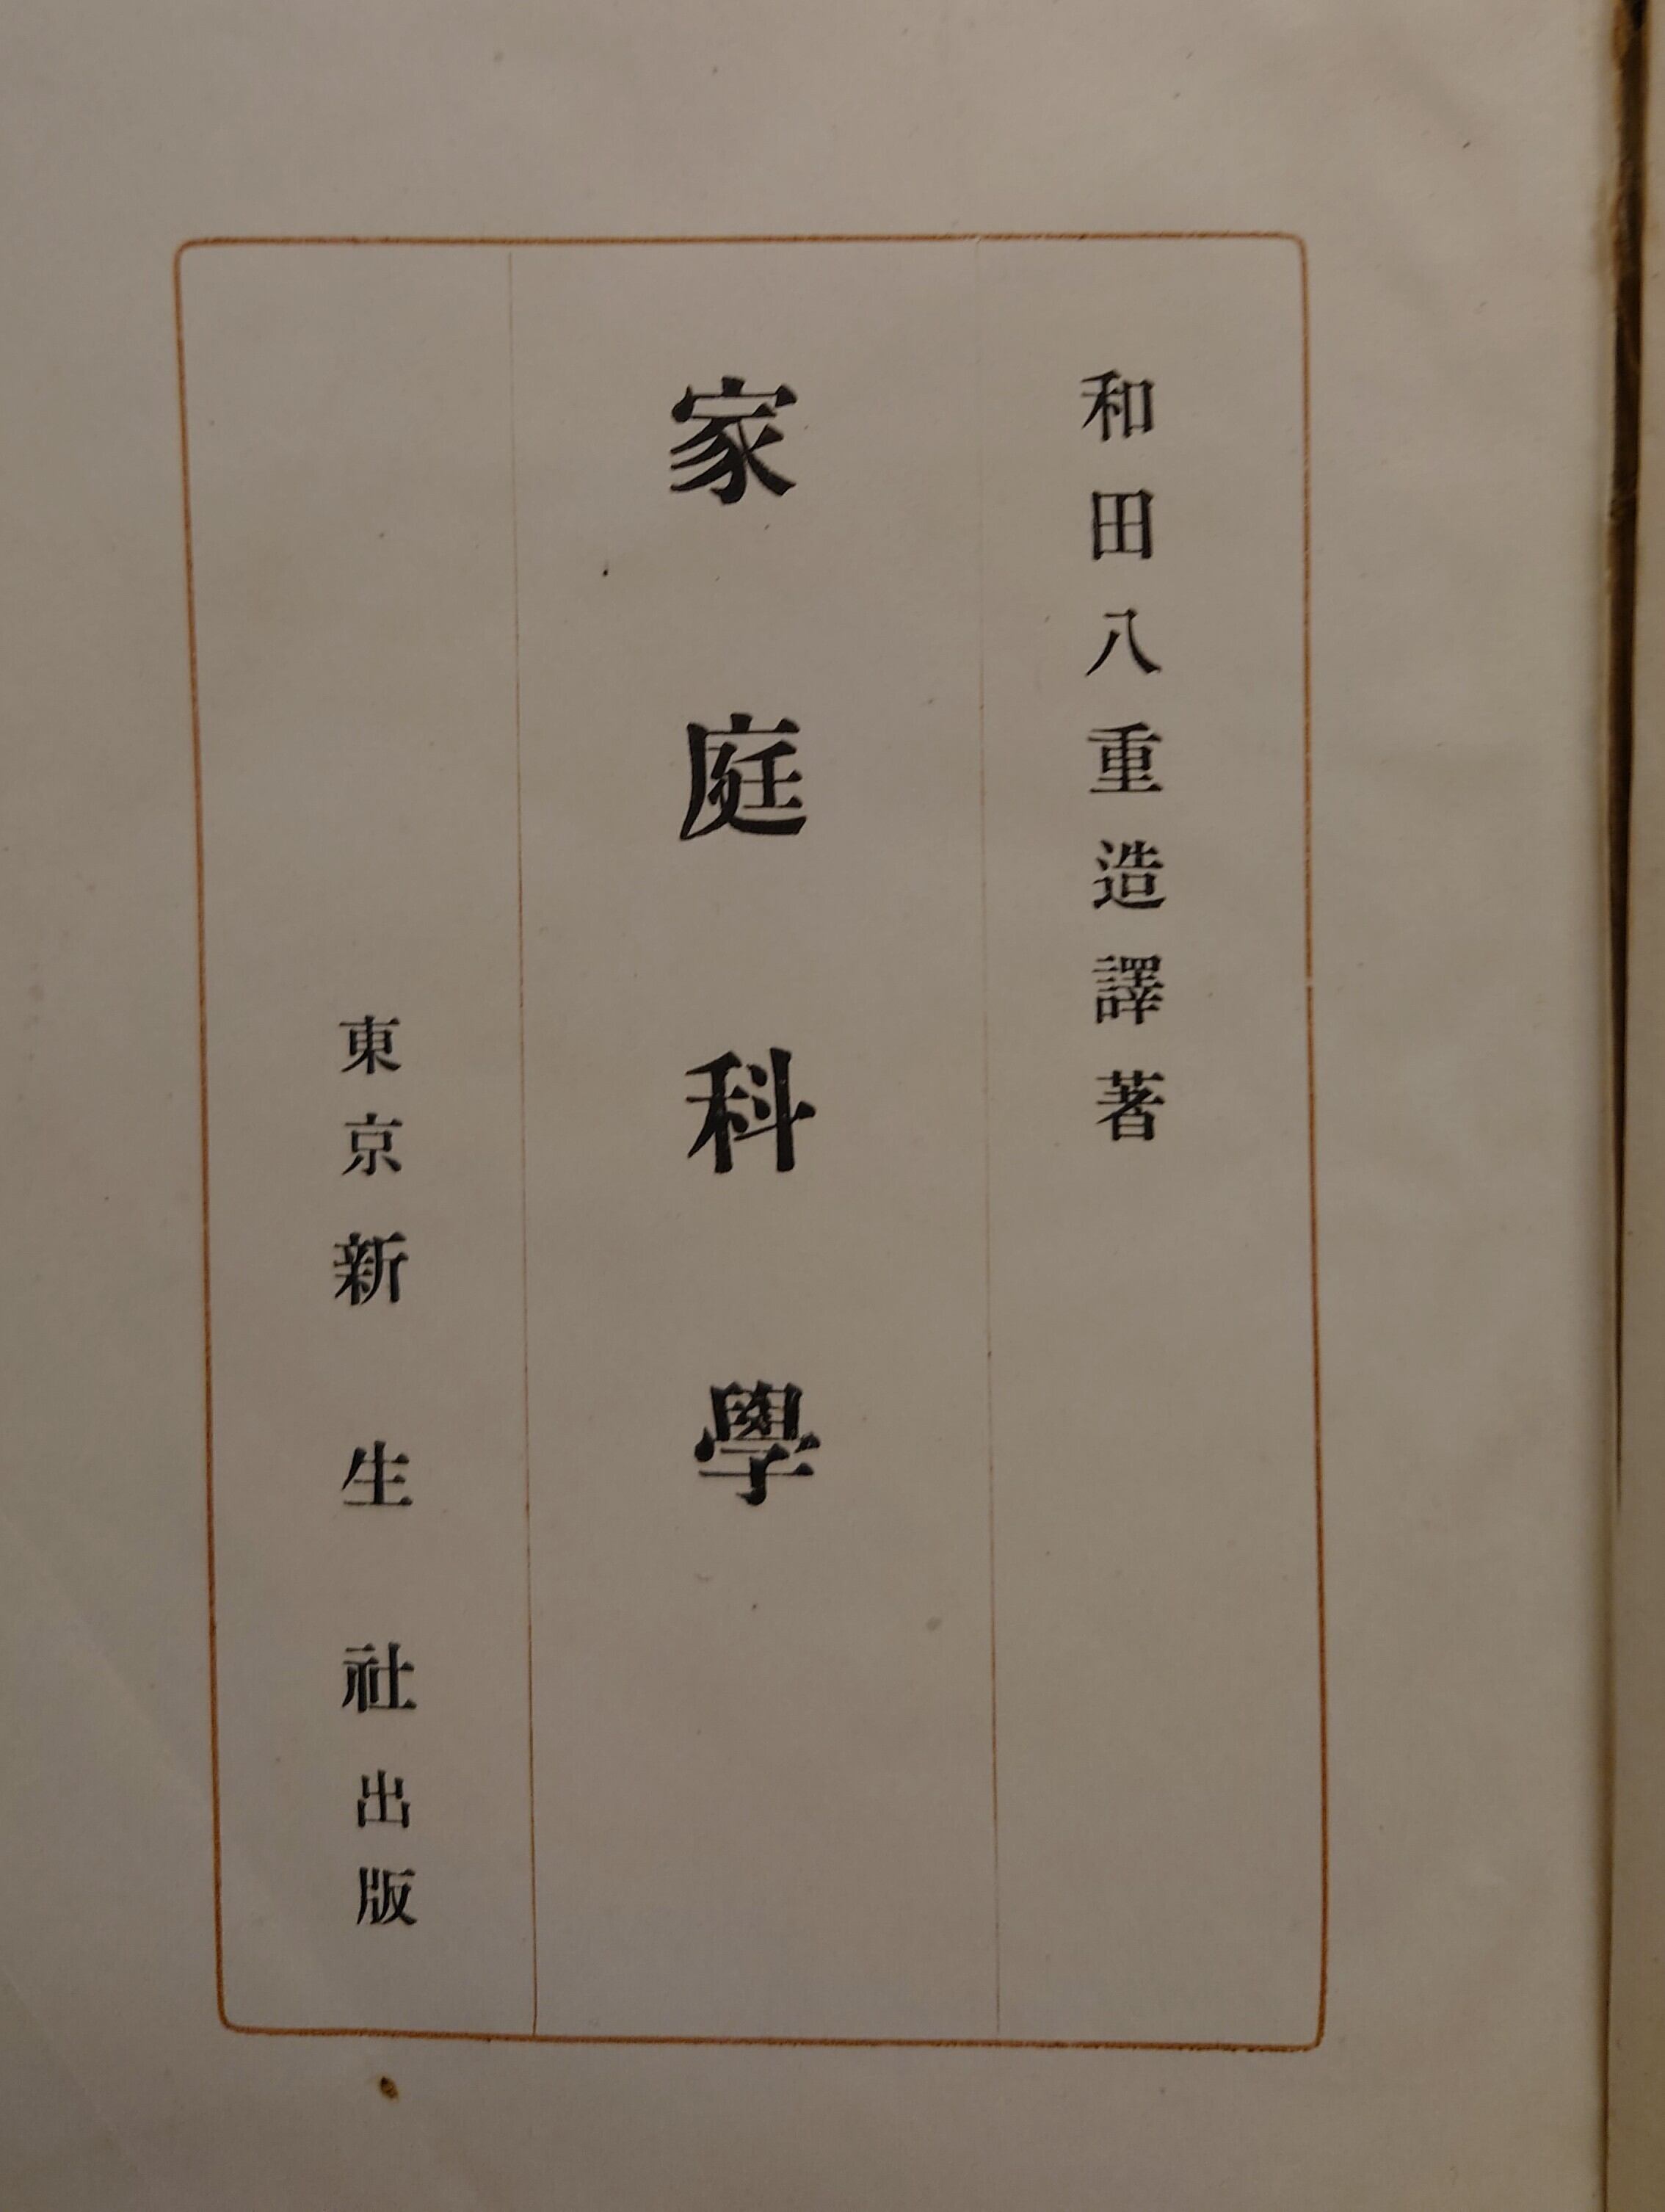 和田八重造譯著
家庭科學
東京新生社出版